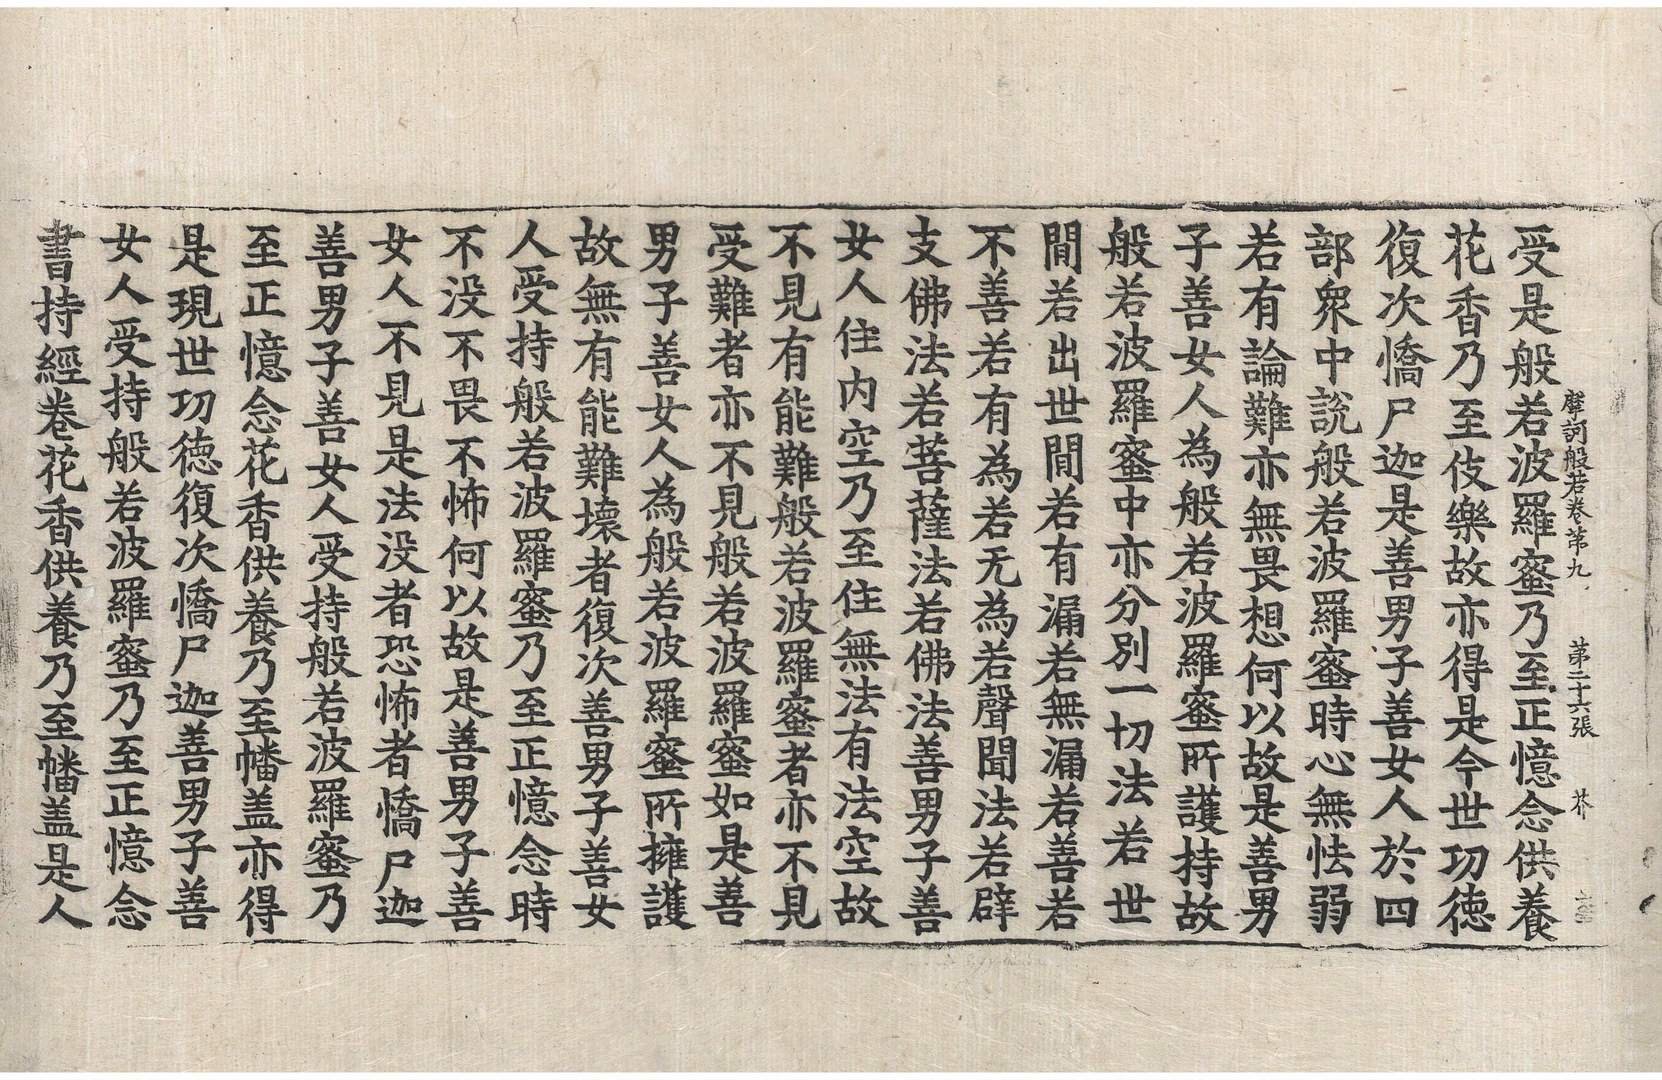 摩訶般若卷第九 第二十六張 芥
受是般若波羅蜜乃至正憶念供養
花香乃至伎樂故亦得是今世功徳
復次憍尸迦是善男子善女人於四
部衆中說般若波羅蜜時心無怯弱
若有論難亦無畏想何以故是善男
子善女人為般若波羅蜜所護持故
般若波羅蜜中亦分別一切法若世
間若出世間若有漏若無漏若善若
不善若有為若无為若聲聞法若辟
支佛法若菩薩法若佛法善男子善
女人住内空乃至住無法有法空故
不見有能難般若波羅蜜者亦不見
受難者亦不見般若波羅蜜如是善
男子善女人為般若波羅蜜所擁護
故無有能難壞者復次善男子善女
人受持般若波羅蜜乃至正憶念時
不没不畏不怖何以故是善男子善
女人不見是法没者恐怖者憍尸迦
善男子善女人受持般若波羅蜜乃
至正憶念花香供養乃至幡盖亦得
是現世功徳復次憍尸迦善男子善
女人受持般若波羅蜜乃至正憶念
書持經卷花香供養乃至幡盖是人